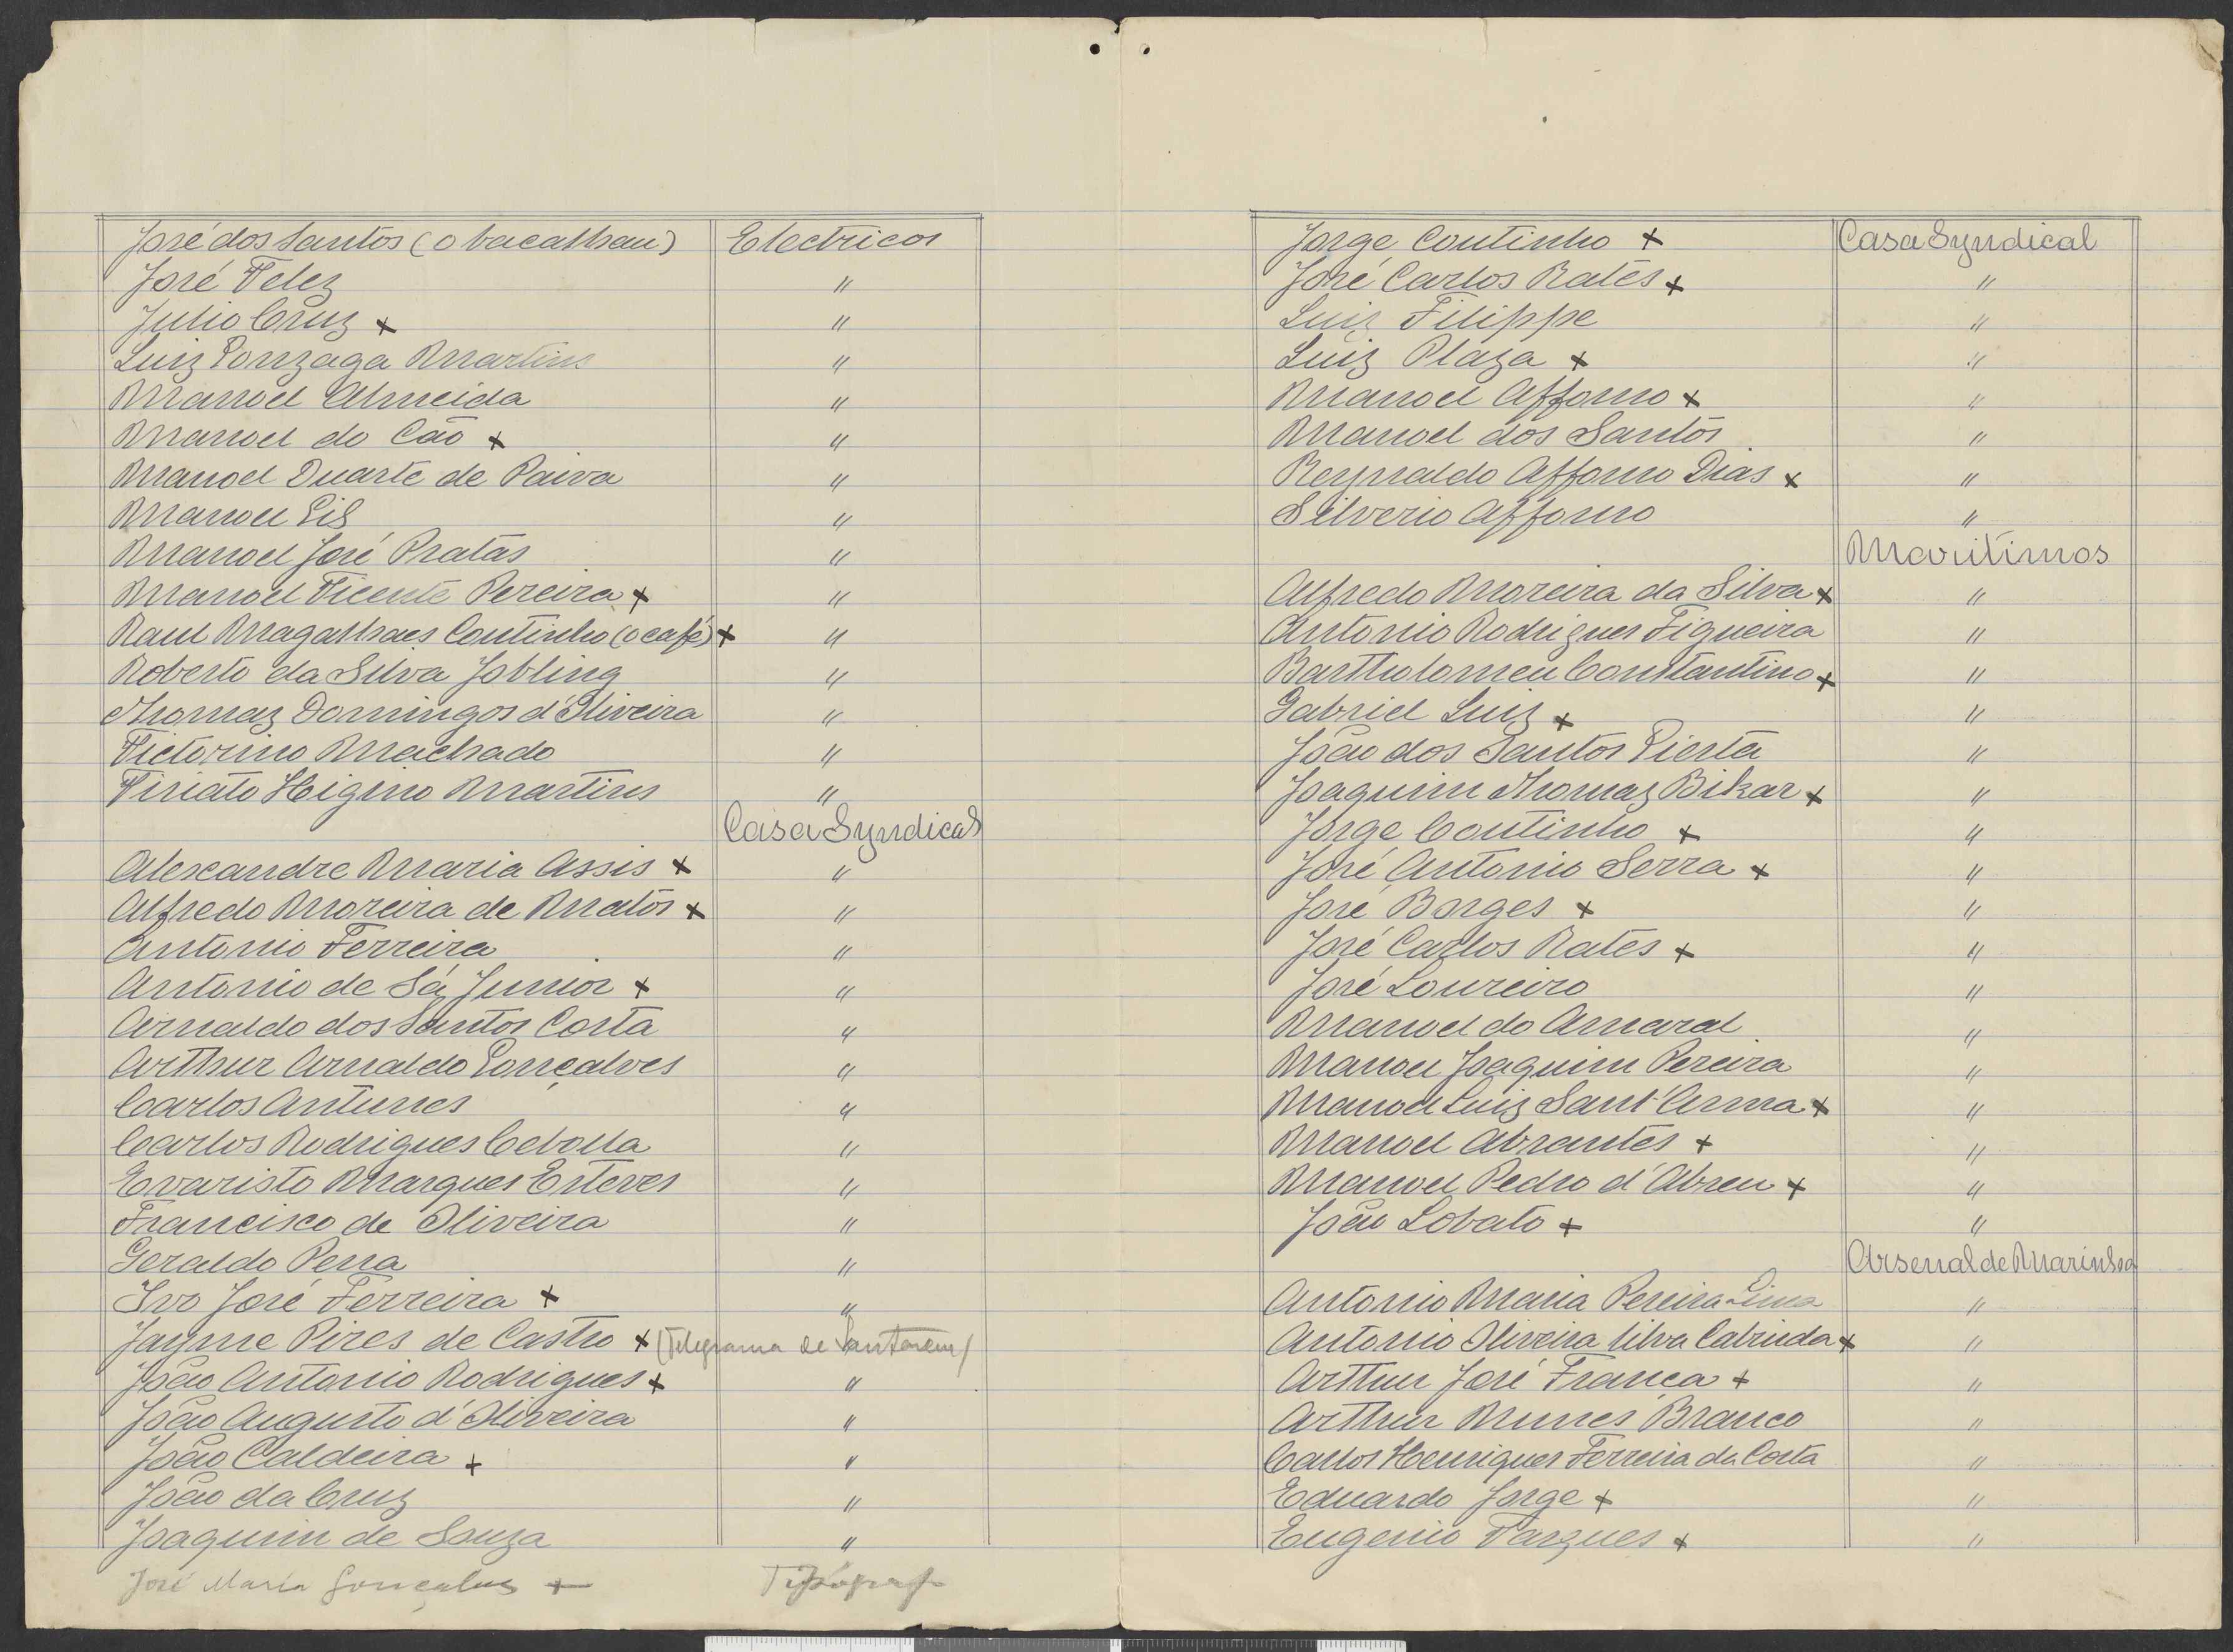 José dos Santos (o bacalhau) Electricos
José Telez "
Julio Cruz + "
Luiz Gonzaga Martins "
Manoel Almeida "
Manoel do Cão + "
Manoel Duarte de Paiva "
Manoel Gil "
Manoel José Pratas "
Manoel Vicente Pereira + "
Raul Magalhaes Coutinho (o café) + "
Roberto da Silva Jobling "
Thomaz Domingos d'Oliveira "
Victorino Machado "
Viriato Higino Martins "
Casa Syndical
Alexandre Maria Assis + "
Alfredo Moreira de Matos + "
Antonio Ferreira "
Antonio de Sá Junior + "
Arnaldo dos Santos Costa "
Arthur Arnaldo Gonçalves "
Carlos Antunes "
Carlos Rodrigues Cebolla "
Evaristo Marques Esteves "
Francisco de Oliveira "
Geraldo Pena "
Ivo José Ferreira + "
Jayme Pires de Castro + (Telegrama de Santarem)
João Antonio Rodrigues + "
João Augusto d'Oliveira "
João Caldeira + "
João da Cruz "
Joaquim de Souza "
José Maria Gonçalves +
Jorge Coutinho + Casa Syndical
José Carlos Rates + "
Luiz Filippe "
Luiz Plaza + "
Manoel Affonso + "
Manoel dos Santos "
Reynaldo Affonso Dias + "
Silverio Affonso "
Maritimos
Alfredo Moreira da Silva + "
Antonio Rodrigues Figueira "
Bartholomeu Constantino + "
Gabriel Luiz + "
João dos Santos Giesta "
Joaquim Thomaz Bikar + "
Jorge Coutinho + "
José Antonio Serra + "
José Borges + "
José Carlos Rates + "
José Loureiro "
Manoel do Amaral "
Manoel Joaquim Pereira "
Manoel Luiz Sant'Anna + "
Manoel Abrantes + "
Manoel Pedro d'Abreu + "
João Lobato + "
Arsenal de Marinha
Antonio Maria Pereira Lima "
Antonio Oliveira Silva Cabrinda + "
Arthur José França + "
Arthur Nunes Branco "
Carlos Henriques Ferreira da Costa "
Eduardo Jorge + "
Eugenio Vargues + "